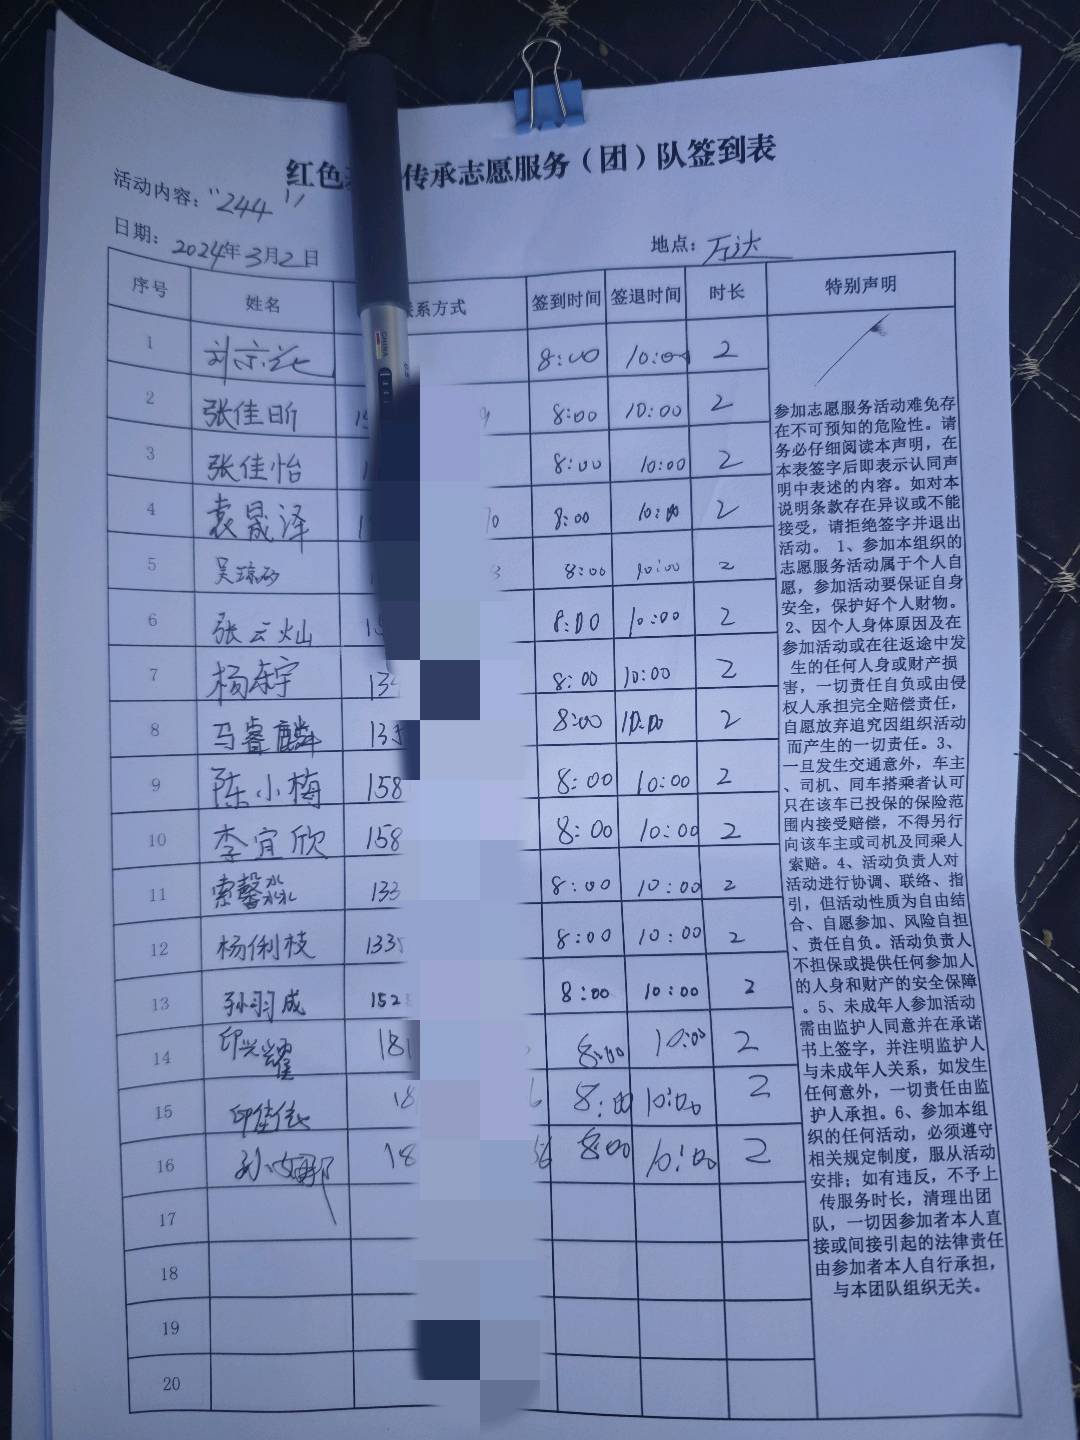 红色 传承志愿服务（团）队签到表
活动内容："244"
日期：2024年3月2日 地点：万达
序号 姓名 联系方式 签到时间 签退时间 时长 特别声明
1 8:00 10:00 2
2 张佳昕 8:00 10:00 2
3 张佳怡 8:00 10:00 2
4 袁晟泽 8:00 10:00 2
5 8:00 10:00 2
6 张云灿 8:00 10:00 2
7 8:00 10:00 2
8 马睿麟 135 8:00 10:00 2
9 陈小梅 158 8:00 10:00 2
10 李宜欣 158 8:00 10:00 2
11 索馨淼 133 8:00 10:00 2
12 杨俐枝 1335 8:00 10:00 2
13 孙羽成 152 8:00 10:00 2
14 印兴耀 181 8:00 10:00 2
15 18 8:00 10:00 2
16 18 8:00 10:00 2
17
18
19
20
参加志愿服务活动难免存
在不可预知的危险性。请
务必仔细阅读本声明，在
本表签字后即表示认同声
明中表述的内容。如对本
说明条款存在异议或不能
接受，请拒绝签字并退出
活动。1、参加本组织的
志愿服务活动属于个人自
愿，参加活动要保证自身
安全，保护好个人财物。
2、因个人身体原因及在
参加活动或在往返途中发
生的任何人身或财产损
害，一切责任自负或由侵
权人承担完全赔偿责任，
自愿放弃追究因组织活动
而产生的一切责任。3、
一旦发生交通意外，车主
、司机、同车搭乘者认可
只在该车已投保的保险范
围内接受赔偿，不得另行
向该车主或司机及同乘人
索赔。4、活动负责人对
活动进行协调、联络、指
引，但活动性质为自由结
合、自愿参加、风险自担
、责任自负。活动负责人
不担保或提供任何参加人
的人身和财产的安全保障
。5、未成年人参加活动
需由监护人同意并在承诺
书上签字，并注明监护人
与未成年人关系，如发生
任何意外，一切责任由监
护人承担。6、参加本组
织的任何活动，必须遵守
相关规定制度，服从活动
安排；如有违反，不予上
传服务时长，清理出团
队，一切因参加者本人直
接或间接引起的法律责任
由参加者本人自行承担，
与本团队组织无关。